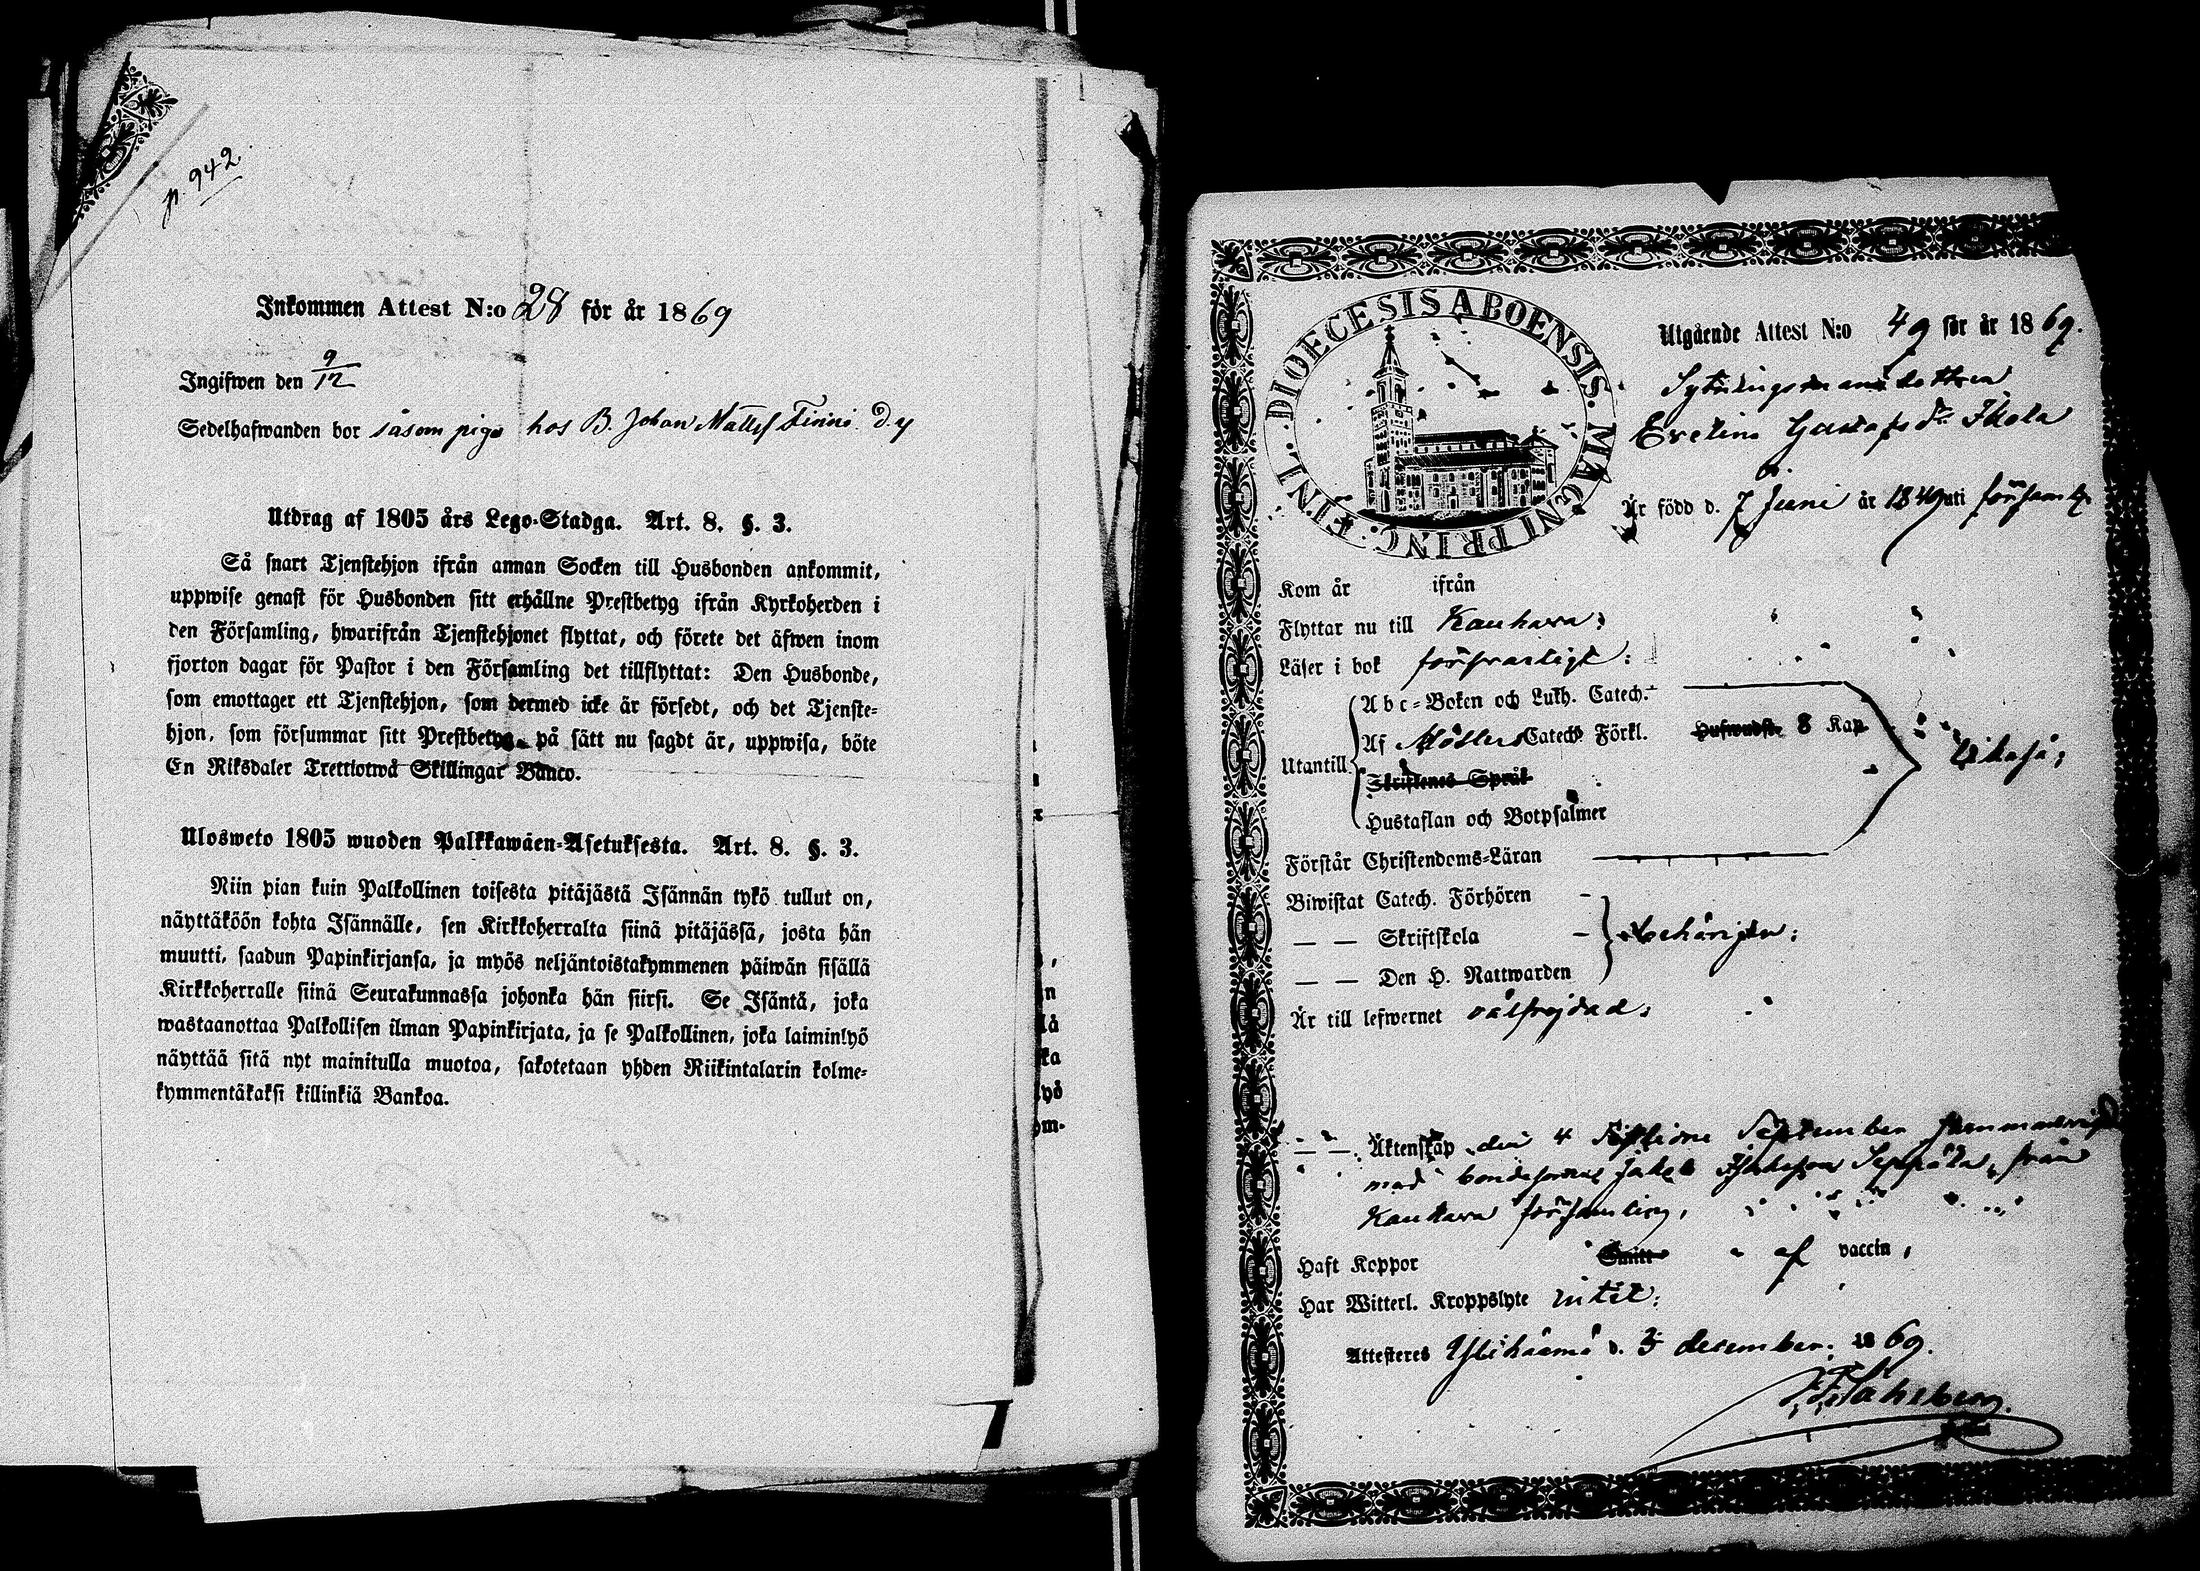 p. 942.
Inkommen Attest N:o 28 för år 1869
Ingifwen den 9/12
Sedelhafwanden bor såsom piga hos B. Johan Mattsf Finni
Utdrag af 1805 års Lego-Stadga. Art. 8. §. 3.
Så snart Tjenstehjon ifrån annan Socken till Husbonden ankommit,
uppwise genast för Husbonden sitt erhållne Prestbetyg ifrån Kyrkoherden i
den Församling, hwarifrån Tjenstehjonet flyttat, och förete det äfwen inom
fjorton dagar för Pastor i den Församling det tillflyttat: Den Husbonde,
som emottager ett Tjenstehjon, som dermed icke är försedt, och det Tjenste-
hjon, som försummar sitt Prestbetyg på sätt nu sagdt är, uppwisa, böte
En Riksdaler Trettiotwå Skillingar Banco.
Ulosweto 1805 wuoden Palkkawäen-Asetuksesta. Art. 8. §. 3.
Niin pian kuin Palkollinen toisesta pitäjästä Isännän tykö tullut on,
näyttäköön kohta Isännälle, sen Kirkkoherralta siinä pitäjässä, josta hän
muutti, saadun Papinkirjansa, ja myös neljäntoistakymmenen päiwän sisällä
Kirkkoherralle siinä Seurakunnassa johonka hän siirsi. Se Isäntä, joka
wastaanottaa Palkollisen ilman Papinkirjata, ja se Palkollinen, joka laiminlyö
näyttää sitä nyt mainitulla muotoa, sakotetaan yhden Riikintalarin kolme-
kymmentäkaksi killinkiä Bankoa.
FINL. DIOECESIS ABOENSIS. MAGNI PRINC.
Utgående Attest N:o 49 för år 1869.
Sytningsmansdottren
Evelina Gustafsdr Ikola
Är född d. 7 Juni år 1849 uti församl.
Kom år ifrån
Flyttar nu till Kauhava;
Läser i bok försvarligt:
Utantill
Abc-Boken och Luth. Catech.
Af Möllers Catech. Förkl. Hufwudst. 8 Kap
Skriftenes Språk
Hustaflan och Botpsalmer
Likaså;
Förstår Christendoms-Läran
Biwistat Catech. Förhören
— — Skriftskola
— — Den H. Nattwarden
behörigen;
Är till lefwernet välfrejdad;
— — Äktenskap den 4 sistledne September sammanvigd
med bondesonen Jakob Jakobsson Seppälä, från
Kauhava församling,
Haft Koppor Smitt af vaccin,
Har Witterl. Kroppslyte intet;
Attesteres Ylihärmä d. 3 december, 1869.